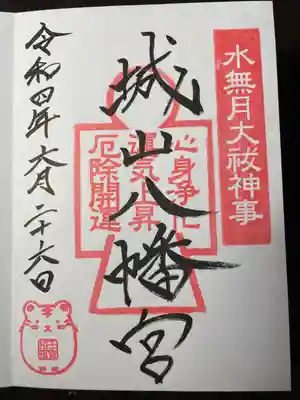 水無月大祓神事
城山八幡宮
心身浄化
運気上昇
厄除開運
令和四年六月二十六日